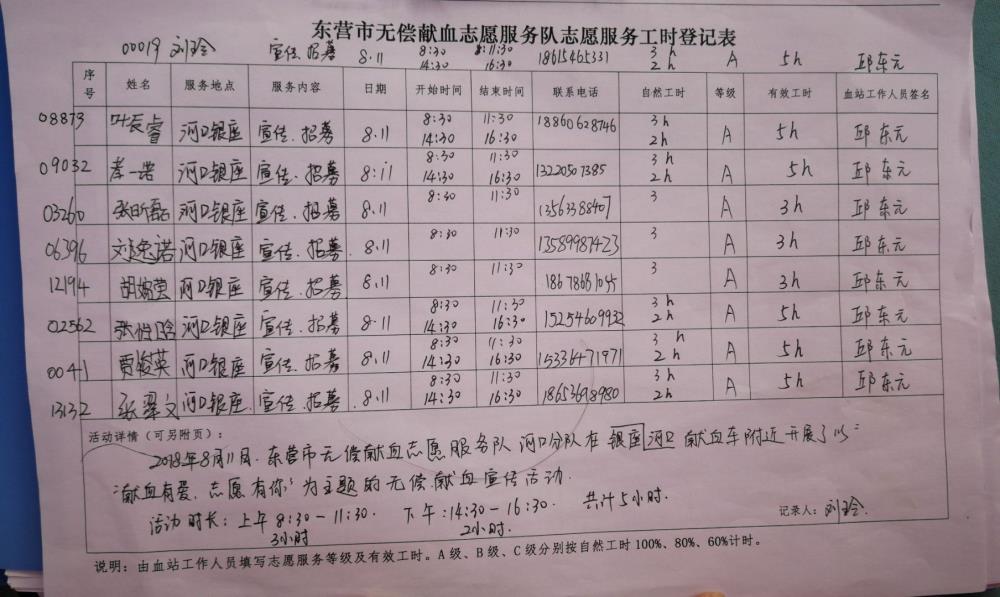 东营市无偿献血志愿服务队志愿服务工时登记表
00019 刘玲 宣传.招募 8.11 8:30 14:30 11:30 16:30 18615465331 3h 2h A 5h 邱东元
序号 姓名 服务地点 服务内容 日期 开始时间 结束时间 联系电话 自然工时 等级 有效工时 血站工作人员签名
08873 叶长睿 河口银座 宣传.招募 8.11 8:30 14:30 11:30 16:30 18860628746 3h 2h A 5h 邱东元
09032 李一诺 河口银座 宣传.招募 8.11 8:30 14:30 11:30 16:30 13220507385 3h 2h A 5h 邱东元
03260 河口银座 宣传.招募 8.11 8:30 11:30 13563388407 3 A 3h 邱东元
06396 刘逸诺 河口银座 宣传.招募 8.11 8:30 11:30 13589987423 3 A 3h 邱东元
12194 河口银座 宣传.招募 8.11 8:30 11:30 3 A 3h 邱东元
02562 河口银座 宣传.招募 8.11 8:30 14:30 11:30 16:30 15254609932 3h 2h A 5h 邱东元
0041 贾俊英 河口银座 宣传.招募 8.11 8:30 14:30 11:30 16:30 15336471971 3h 2h A 5h 邱东元
13132 张翠文 河口银座 宣传.招募 8.11 8:30 14:30 11:30 16:30 18653698980 3h 2h A 5h 邱东元
活动详情（可另附页）：
2018年8月11日.东营市无偿献血志愿服务队 河口分队在 银座河口 献血车附近开展了以“
献血有爱，志愿有你”为主题的无偿献血宣传活动.
活动时长：上午 8:30-11:30. 下午:14:30-16:30. 共计5小时.
3小时 2小时 记录人：刘玲
说明：由血站工作人员填写志愿服务等级及有效工时。A级、B级、C级分别按自然工时100%、80%、60%计时。